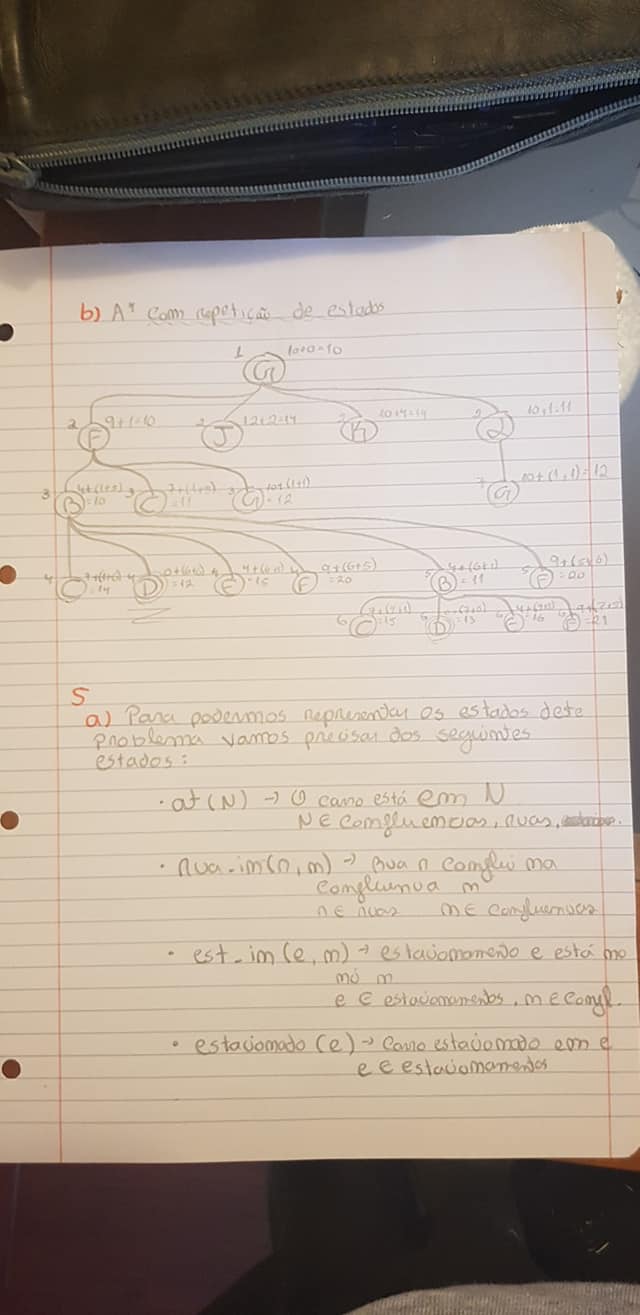 b) A* com repetição de estados
1 G 10+0=10
2 F 9+1=10 J 12+2=14 K 10+4=14 2 10+1=11
3 B =10 C =11 G 10+(1+1) =12 G 10+(1+1)=12
4 C =14 D =12 E =15 F 9+(6+5) =20 B 4+(6+1) =11 F 9+(5+6) =20
6 C =15 D =13 E =16 F =21
5
a) Para podermos representar os estados dete
problema vamos precisar dos seguintes
estados:
· at(N) → O carro está em N
N ∈ confluencias, ruas,
· rua_im(r, m) → Rua r conflui ma
confluencia m
r ∈ ruas m ∈ confluencias
· est_im(e, m) → estacionamento e está no
nó m
e ∈ estacionamentos, m ∈ confl.
· estacionado(e) → Carro estacionado em e
e ∈ estacionamentos